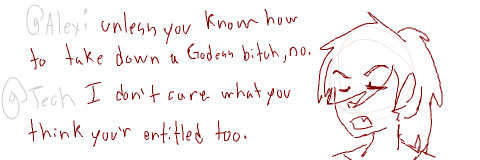 @Alexi unless you know how
to take down a Godess bitch, no.
@Tech I don't care what you
think you'r entitled too.